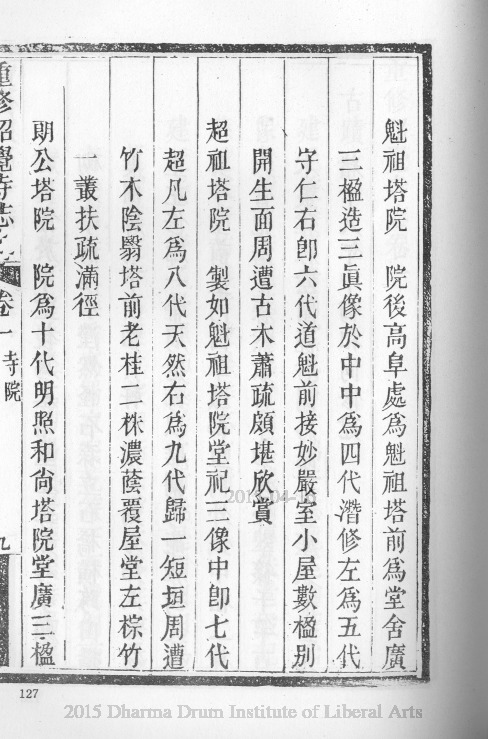 魁祖塔院　院後高阜處爲魁祖塔前爲堂舍廣
三楹造三眞像於中中爲四代濳修左爲五代
守仁右卽六代道魁前接妙嚴室小屋數楹別
開生面周遭古木蕭疏頗堪欣賞
超祖塔院　製如魁祖塔院堂祀三像中卽七代
超凡左爲八代天然右爲九代歸一短垣周遭
竹木陰翳塔前老桂二株濃蔭覆屋堂左棕竹
一叢扶疏滿徑
明公塔院　院爲十代明照和尙塔院堂廣三楹
重修昭覺寺志 卷一 寺院 九
127
2015 Dharma Drum Institute of Liberal Arts